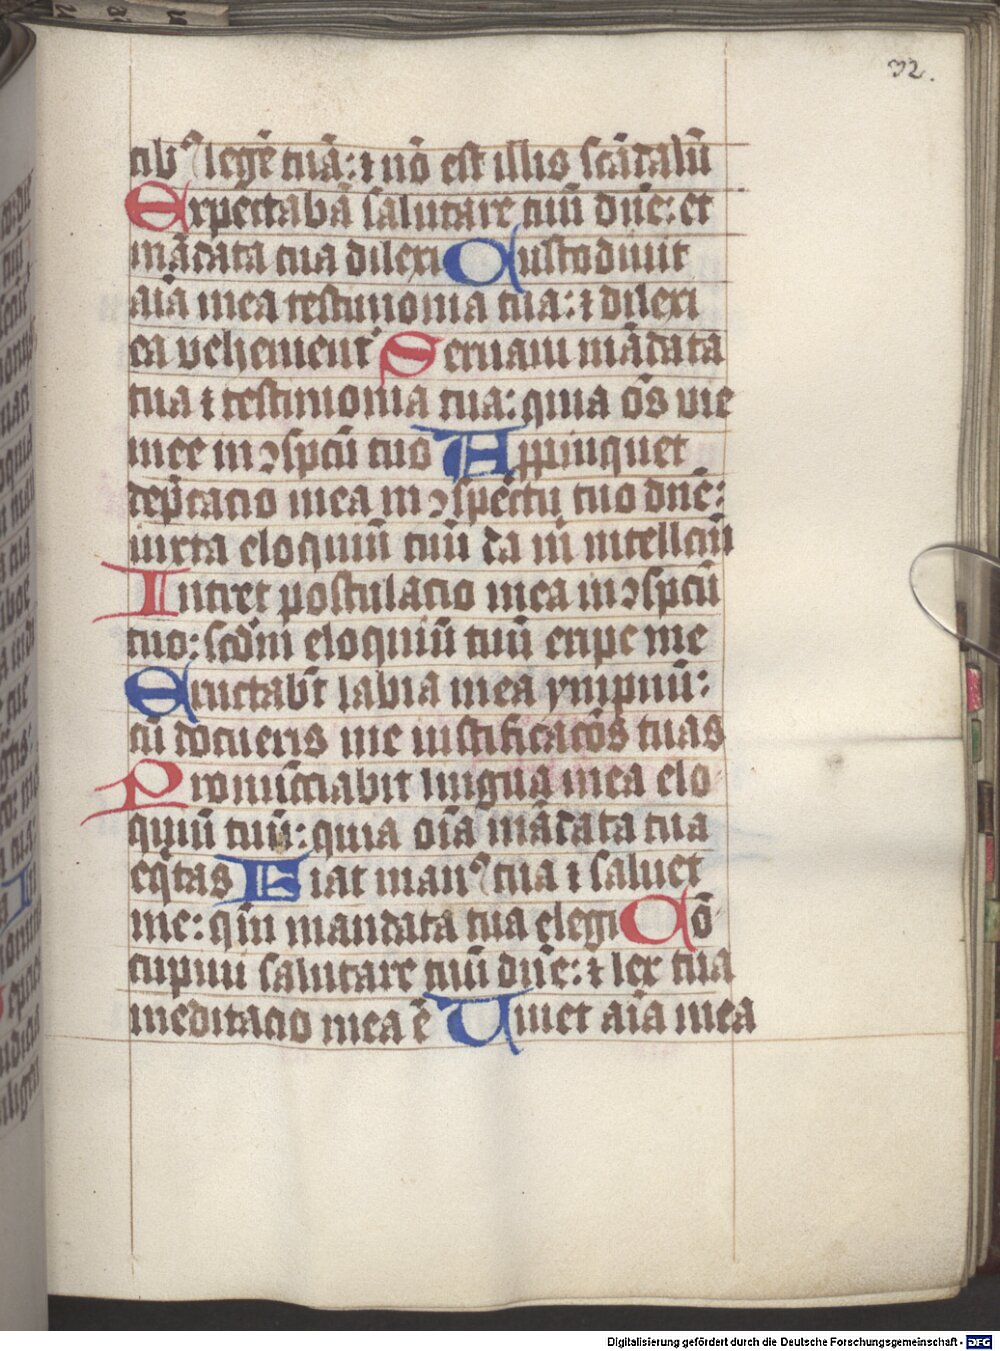 32.
tib⁹ legē tuā: ⁊ nō est illis scādalū
Expectabā salutare tuū dn̄e: et
mādata tua dilexi Custodiuit
aīa mea testimonia tua: ⁊ dilexi
ea vehement᷑ Seruaui mādata
tua ⁊ testimonia tua: quia ōs vie
mee in ↄspcū tuo Appinquet
dep̄catio mea in ↄspectu tuo dn̄e:
iuxta eloquiū tuū da m̄ intellcū
Intret postulatio mea in ↄspcū
tuo: scdm̄ eloquiū tuū eripe me
Eructabt̄ labia mea ympnū:
cū docueris me iustificacōs tuas
Pronūciabit lingua mea elo
quiū tuū: quia oīa mādata tua
eq̄tas Fiat man⁹ tua ⁊ saluet
me: qm̄ mandata tua elegi Cō
cupiui salutare tuū dn̄e: ⁊ lex tua
meditatio mea ē Uiuet aīa mea
Digitalisierung gefördert durch die Deutsche Forschungsgemeinschaft - DFG